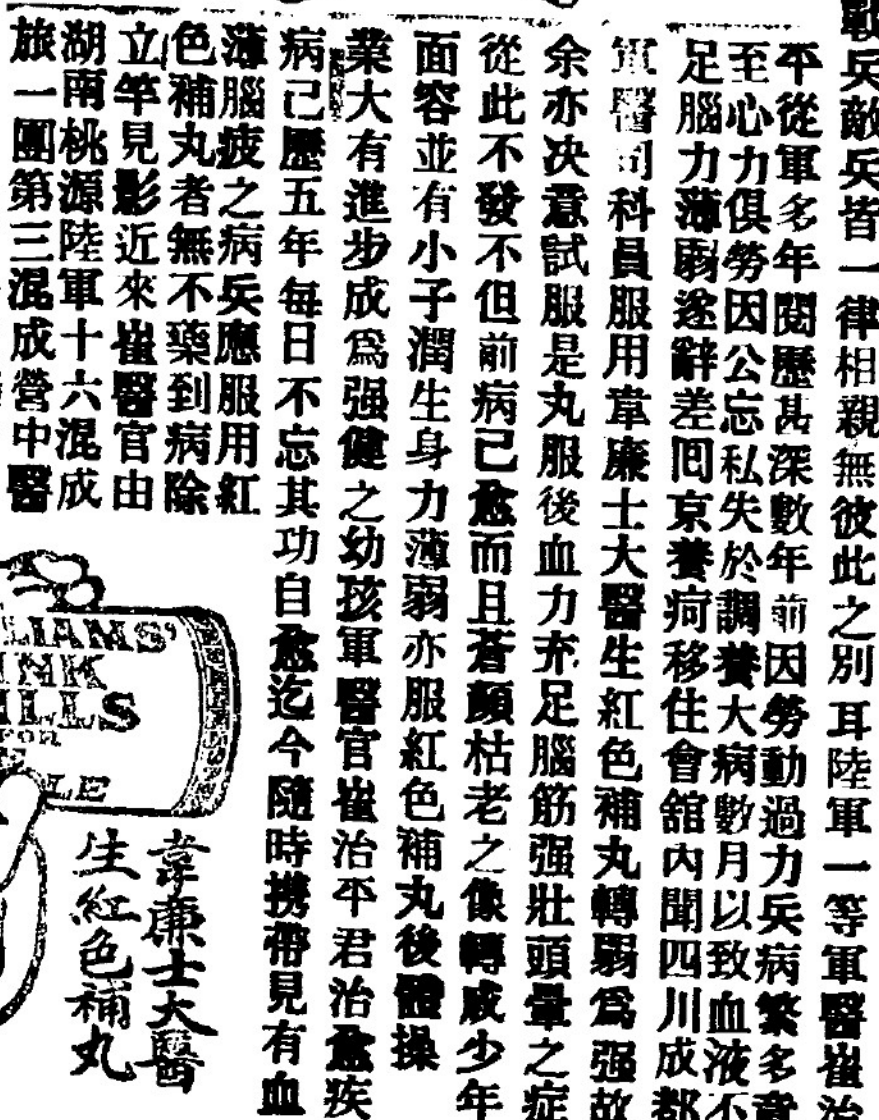 戰兵敵兵皆一律相親無彼此之別耳陸軍一等軍醫崔治
平從軍多年閱歷甚深數年前因勞動過力兵病繁多竟
至心力俱勞因公忘私失於調養大病數月以致血液不
足腦力薄弱遂辭差囘京養疴移住會舘內聞四川成都
軍醫司科員服用韋廉士大醫生紅色補丸轉弱爲强故
余亦决意試服是丸服後血力充足腦筋强壯頭暈之症
從此不發不但前病已愈而且蒼顏枯老之像轉成少年
面容並有小子潤生身力薄弱亦服紅色補丸後體操
業大有進步成爲强健之幼孩軍醫官崔治平君治愈疾
病已歷五年每日不忘其功自愈迄今隨時携帶見有血
薄腦疲之病兵應服用紅
色補丸者無不藥到病除
立竿見影近來崔醫官由
湖南桃源陸軍十六混成
旅一團第三混成營中醫
LIAMS'
INK
ILLS
FOR
LE
韋廉士大醫
生紅色補丸